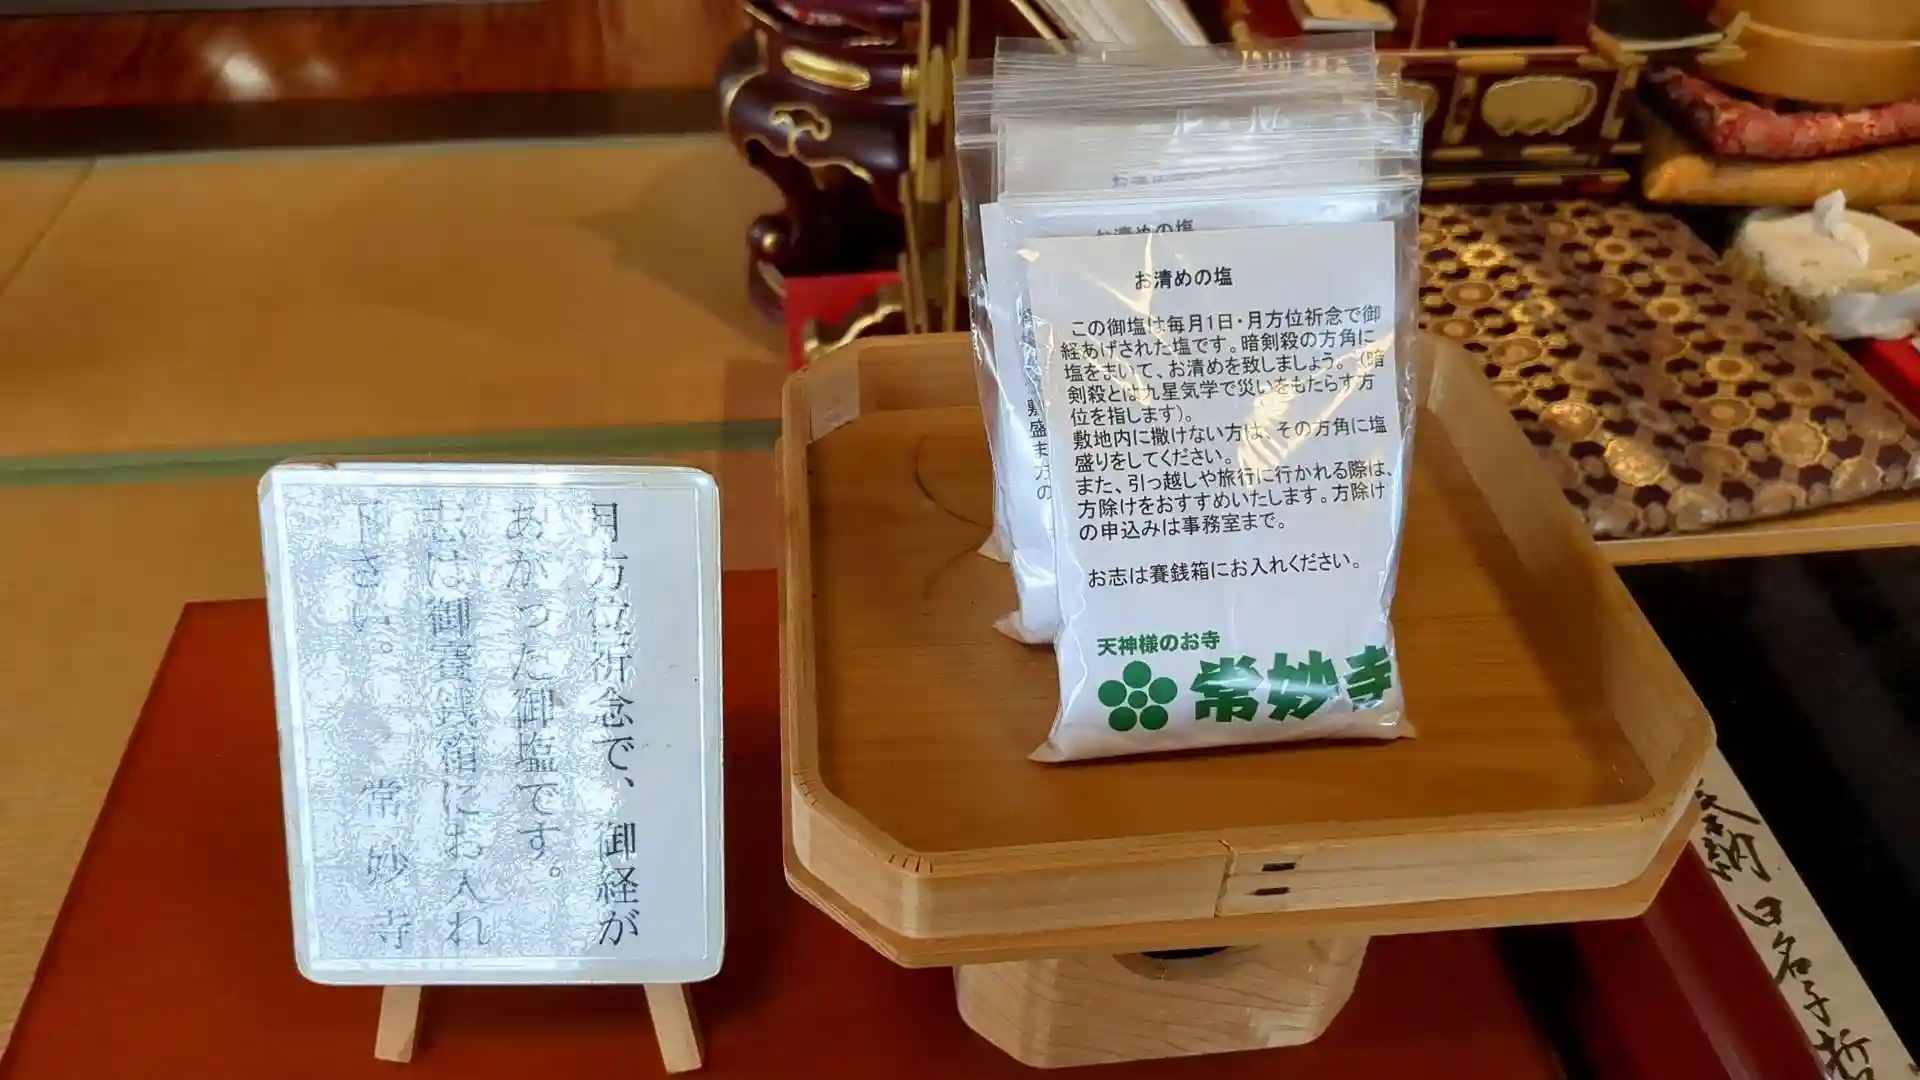 月方位祈念で、御経が
あがった御塩です。
志は御賽銭箱にお入れ
下さい。
常妙寺
お清めの塩
お清めの塩
この御塩は毎月1日・月方位祈念で御
経あげされた塩です。暗剣殺の方角に
塩をまいて、お清めを致しましょう。（暗
剣殺とは九星気学で災いをもたらす方
位を指します）。
敷地内に撒けない方は、その方角に塩
盛りをしてください。
また、引っ越しや旅行に行かれる際は、
方除けをおすすめいたします。方除け
の申込みは事務室まで。
お志は賽銭箱にお入れください。
天神様のお寺
常妙寺